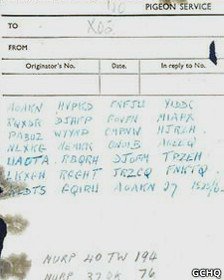 PIGEON SERVICE
TO XO2
FROM
Originator's No. Date. In reply to No.
AOAKN HVPKD FNFJW YIDDC
RQXSR DJHFP GOVFN MIAPX
PABUZ WYYNP CMPNW HJRZH
NLXKG MEMKK ONOIB AKEEQ
UAOTA RBQRH DJOFM TPZEH
LKXGH RGGHT JRZCQ FNKTQ
KLDTS GQIRW AOAKN 27 1525/6
NURP 40 TW 194
NURP 37 DK 76
GCHQ